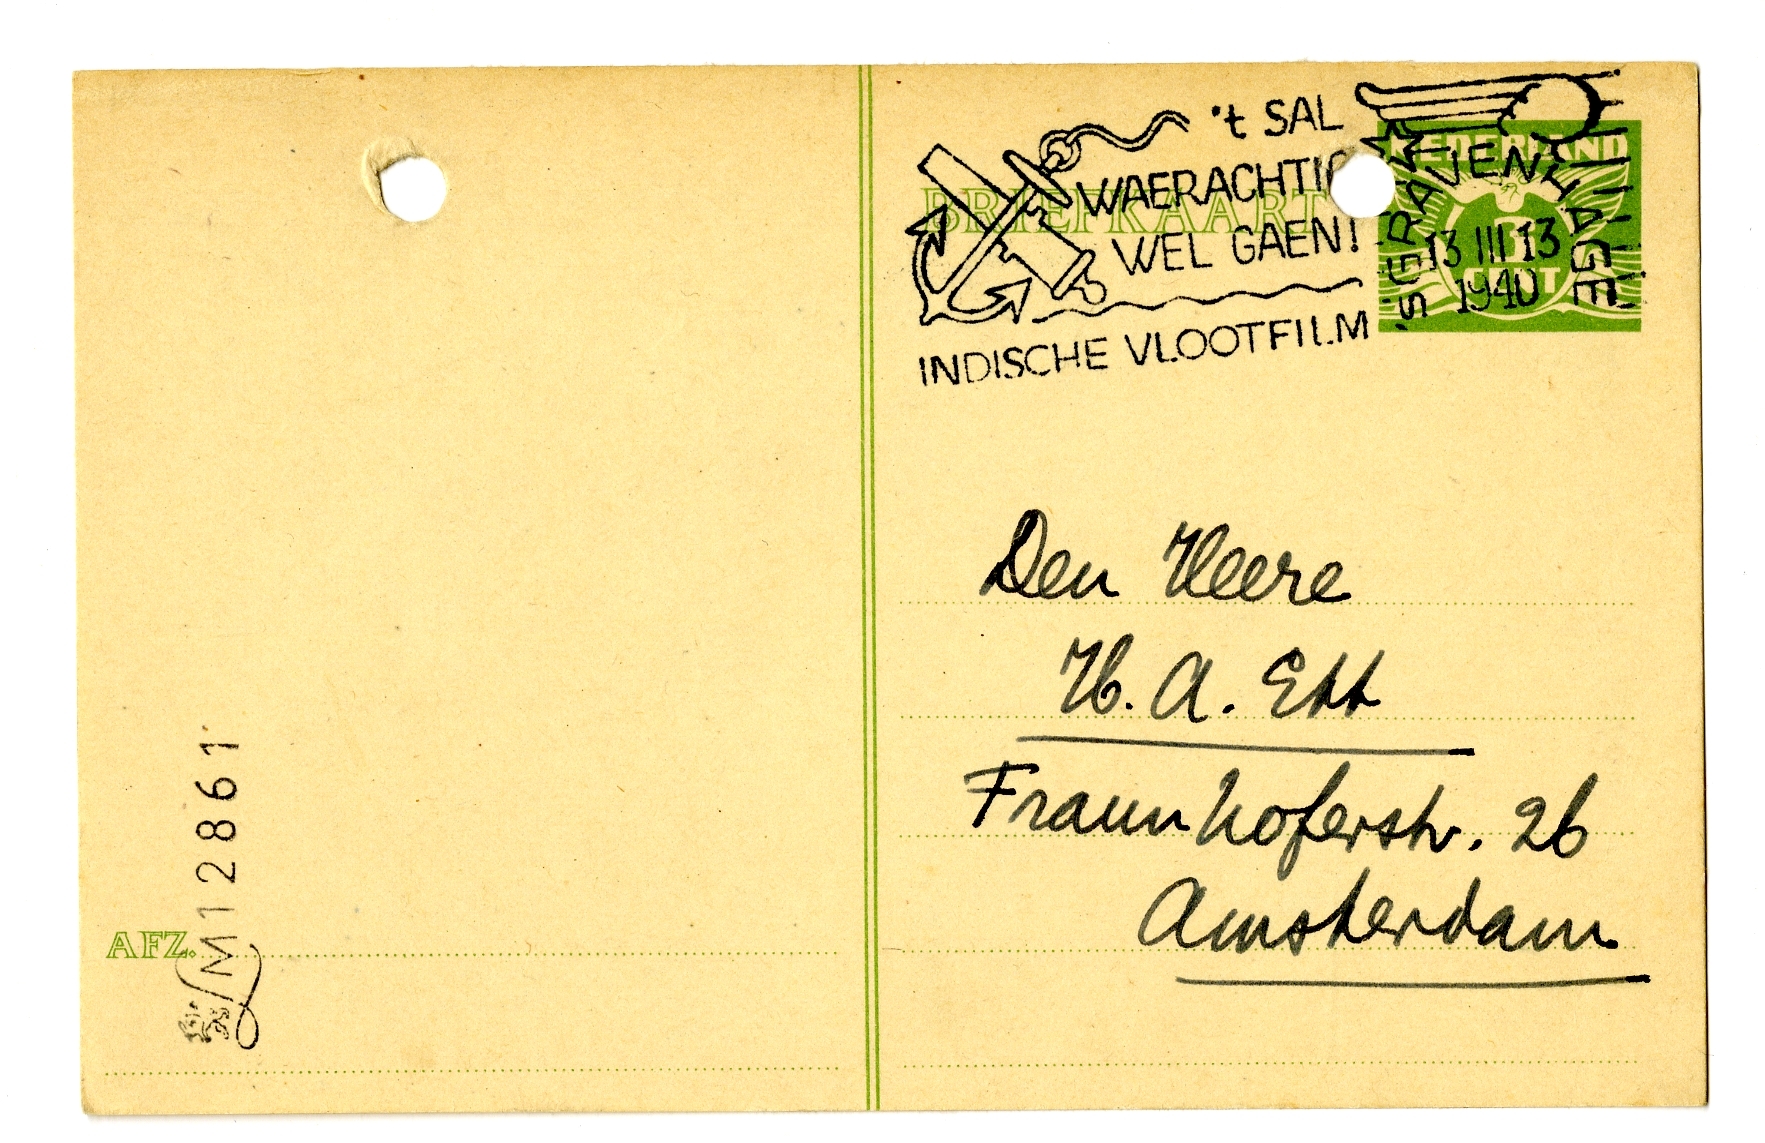 't SAL
WAERACHTIG
WEL GAEN!
INDISCHE VLOOTFILM
BRIEFKAART
NEDERLAND
'S GRAVENHAGE
13 III 13
1940
CENT
Den Heere
H. A. Ett
Fraunhoferstr. 26
Amsterdam
M12861
AFZ.